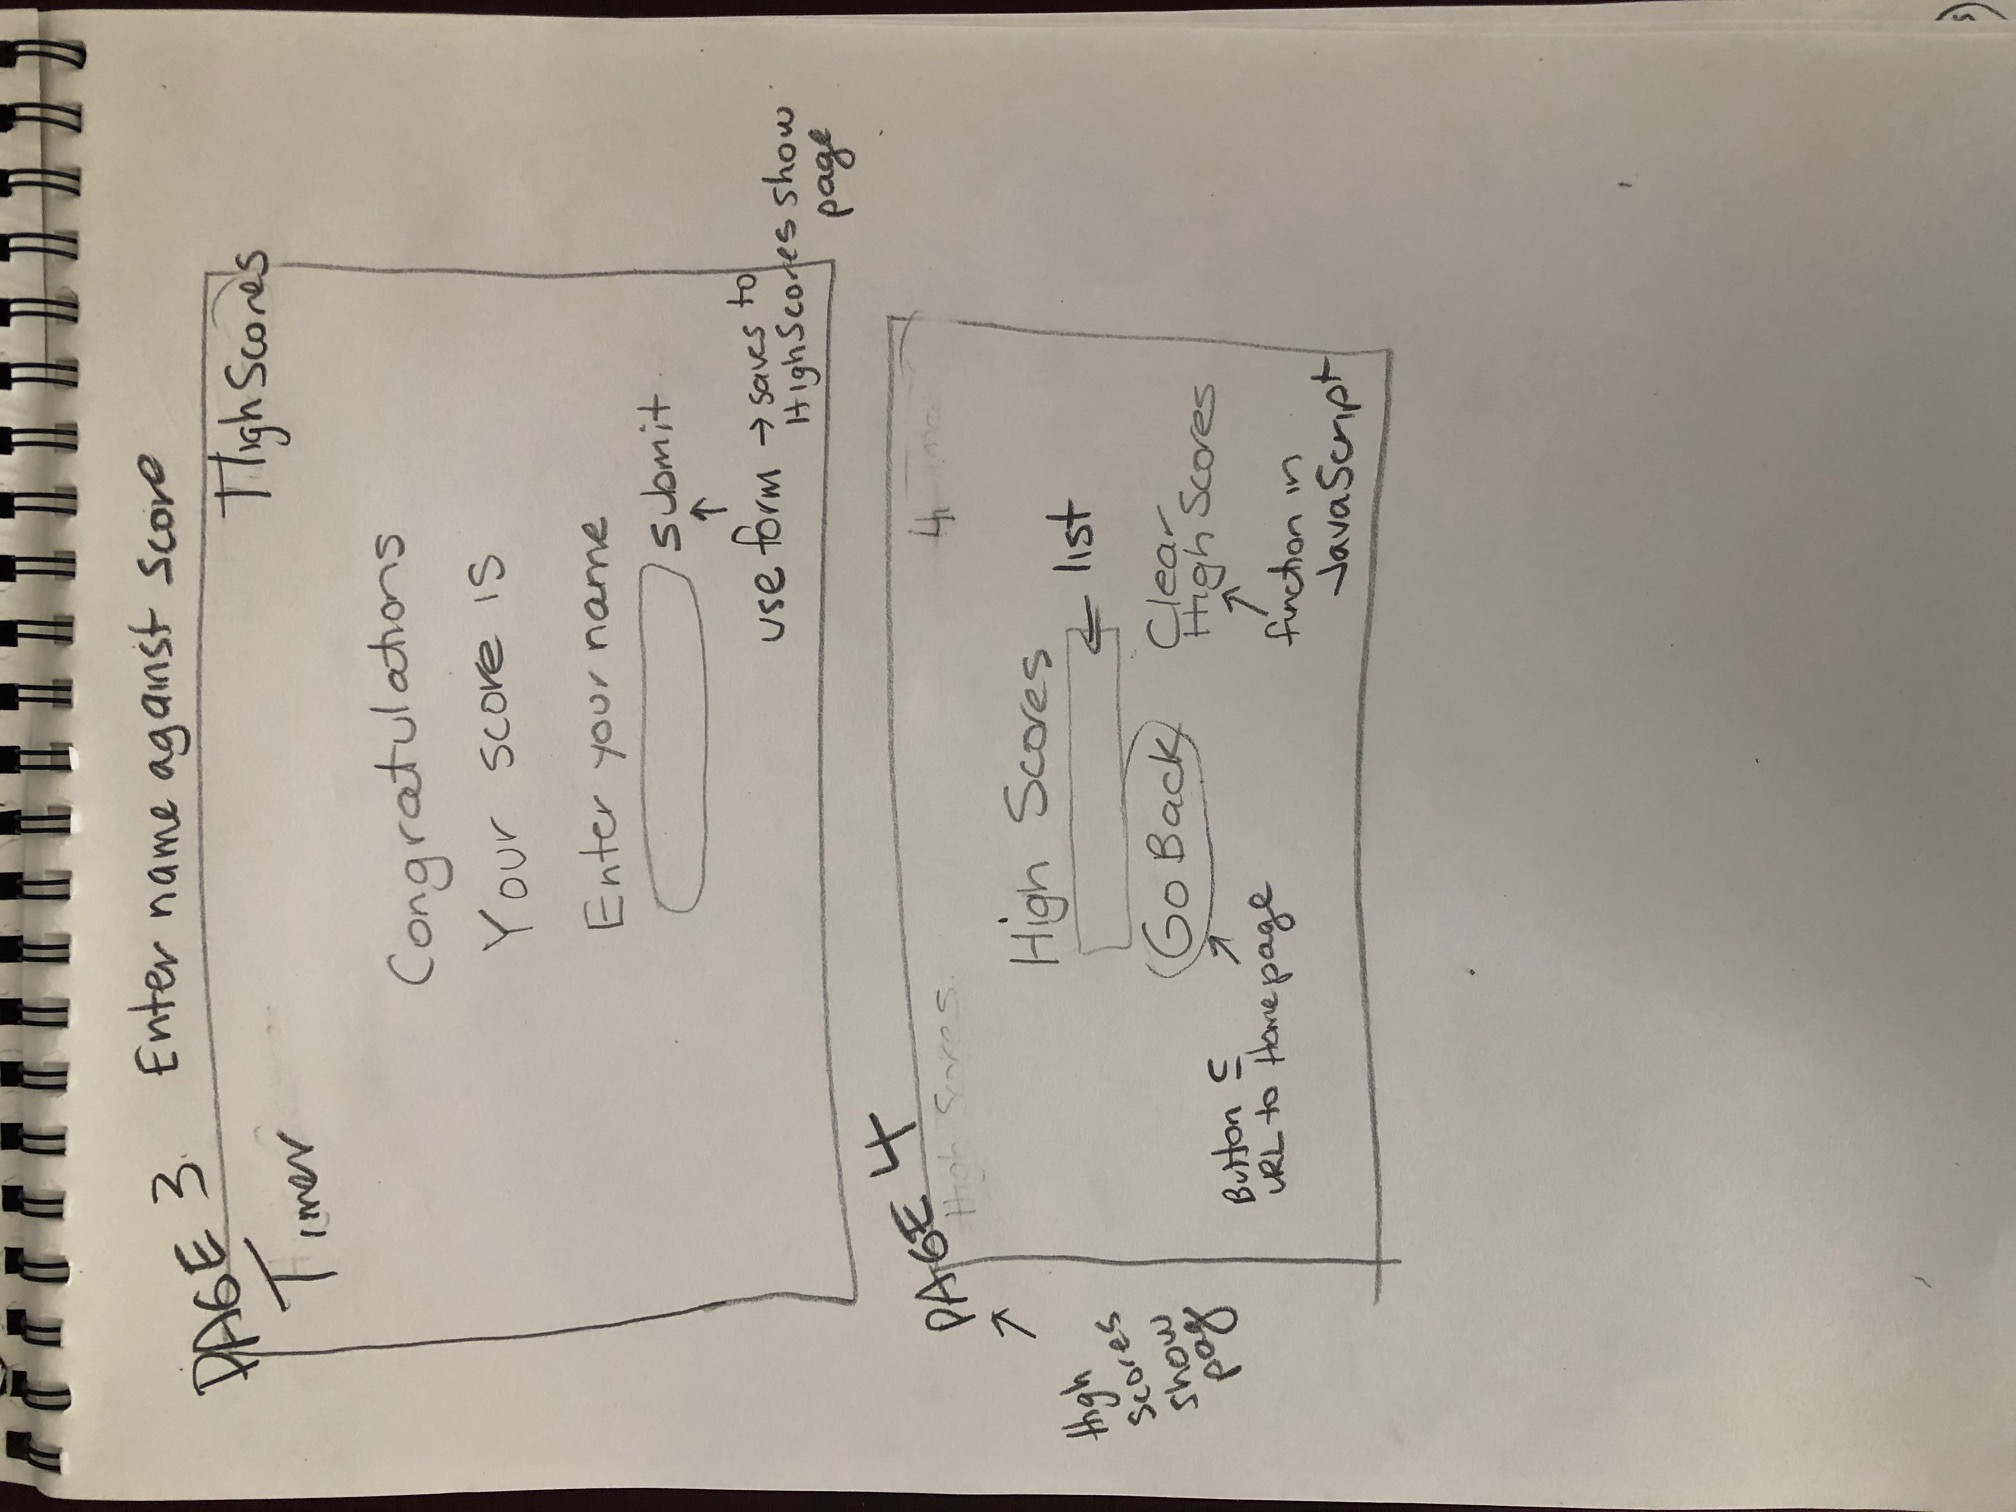 Enter name against score
PAGE 3.
Timer
High Scores
Congratulations
Your score is
Enter your name
submit
use form → saves to
High Scores show
page
PAGE 4
High Scores.
4
High
Scores
show
pag
High Scores
list
Go Back
Clear
High Scores
Button c
URL to Homepage
function in
JavaScript